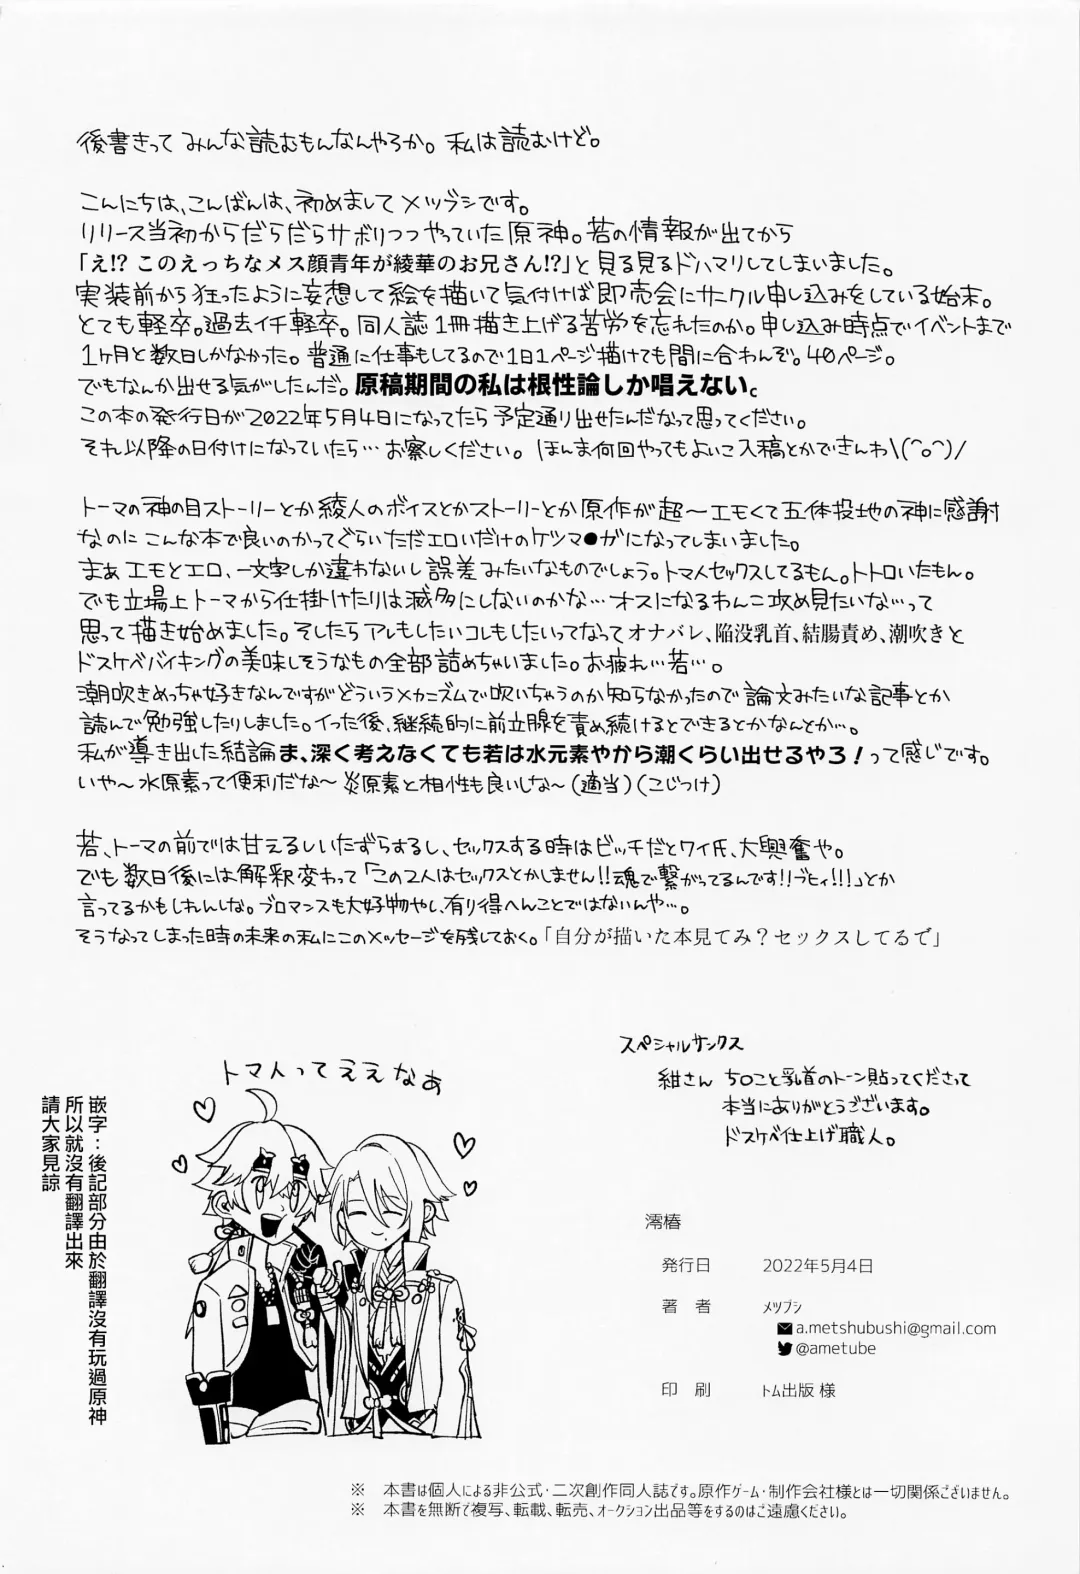 後書きって みんな読むもんなんやろか。私は読むけど。
こんにちは、こんばんは、初めまして メツブシです。
リリース当初からだらだらサボりつつやっていた原神。若の情報が出てから
「え!? このえっちなメス顔青年が綾華のお兄さん!?」と見る見るドハマりしてしまいました。
実装前から狂ったように妄想して絵を描いて気付けば即売会にサークル申し込みをしている始末。
とても軽卒。過去イチ軽卒。同人誌1冊描き上げる苦労を忘れたのか。申し込み時点でイベントまで
1ヶ月と数日しかなかった。普通に仕事もしてるので1日1ページ描けても間に合わんぞ。40ページ。
でもなんか出せる気がしたんだ。原稿期間の私は根性論しか唱えない。
この本の発行日が2022年5月4日になってたら予定通り出せたんだなって思ってください。
それ以降の日付けになっていたら…お察しください。ほんま何回やってもよいこ入稿とかできんわ\(^o^)/
トーマの神の目ストーリーとか綾人のボイスとかストーリーとか原作が超〜エモくて五体投地の神に感謝
なのにこんな本で良いのかってぐらいただエロいだけのケツマ●ガになってしまいました。
まぁエモとエロ、一文字しか違わないし誤差みたいなものでしょう。トマ人セックスしてるもん。トトロいたもん。
でも立場上トーマから仕掛けたりは滅多にしないのかな…オスになるわんこ攻め見たいな…って
思って描き始めました。そしたらアレもしたいコレもしたいってなってオナバレ、陥没乳首、結腸責め、潮吹きと
ドスケベバイキングの美味しそうなもの全部詰めちゃいました。お疲れ…若…。
潮吹きめっちゃ好きなんですがどういうメカニズムで吹いちゃうのか知らなかったので論文みたいな記事とか
読んで勉強したりしました。イった後、継続的に前立腺を責め続けるとできるとかなんとか…。
私が導き出した結論ま、深く考えなくても若は水元素やから潮くらい出せるやろ！って感じです。
いや〜水原素って便利だな〜炎原素と相性も良いしな〜(適当)(こじつけ)
若、トーマの前では甘えるしいたずらするし、セックスする時はビッチだとワイ氏、大興奮や。
でも数日後には解釈変わって「この2人はセックスとかしません!!魂で繋がってるんです!!ブヒィ!!!」とか
言ってるかもしれんしな。ブロマンスも大好物やし、有り得へんことではないんや…。
そうなってしまった時の未来の私にこのメッセージを残しておく。「自分が描いた本見てみ？セックスしてるで」
トマ人ってええなぁ
嵌字：後記部分由於翻譯沒有玩過原神
所以就沒有翻譯出來
請大家見諒
スペシャルサンクス
紺さん ち○こと乳首のトーン貼ってくださって
本当にありがとうございます。
ドスケベ仕上げ職人。
澪椿
発行日 2022年5月4日
著 者 メツブシ
a.metshubushi@gmail.com
@ametube
印 刷 トム出版 様
※ 本書は個人による非公式・二次創作同人誌です。原作ゲーム・制作会社様とは一切関係ございません。
※ 本書を無断で複写、転載、転売、オークション出品等をするのはご遠慮ください。